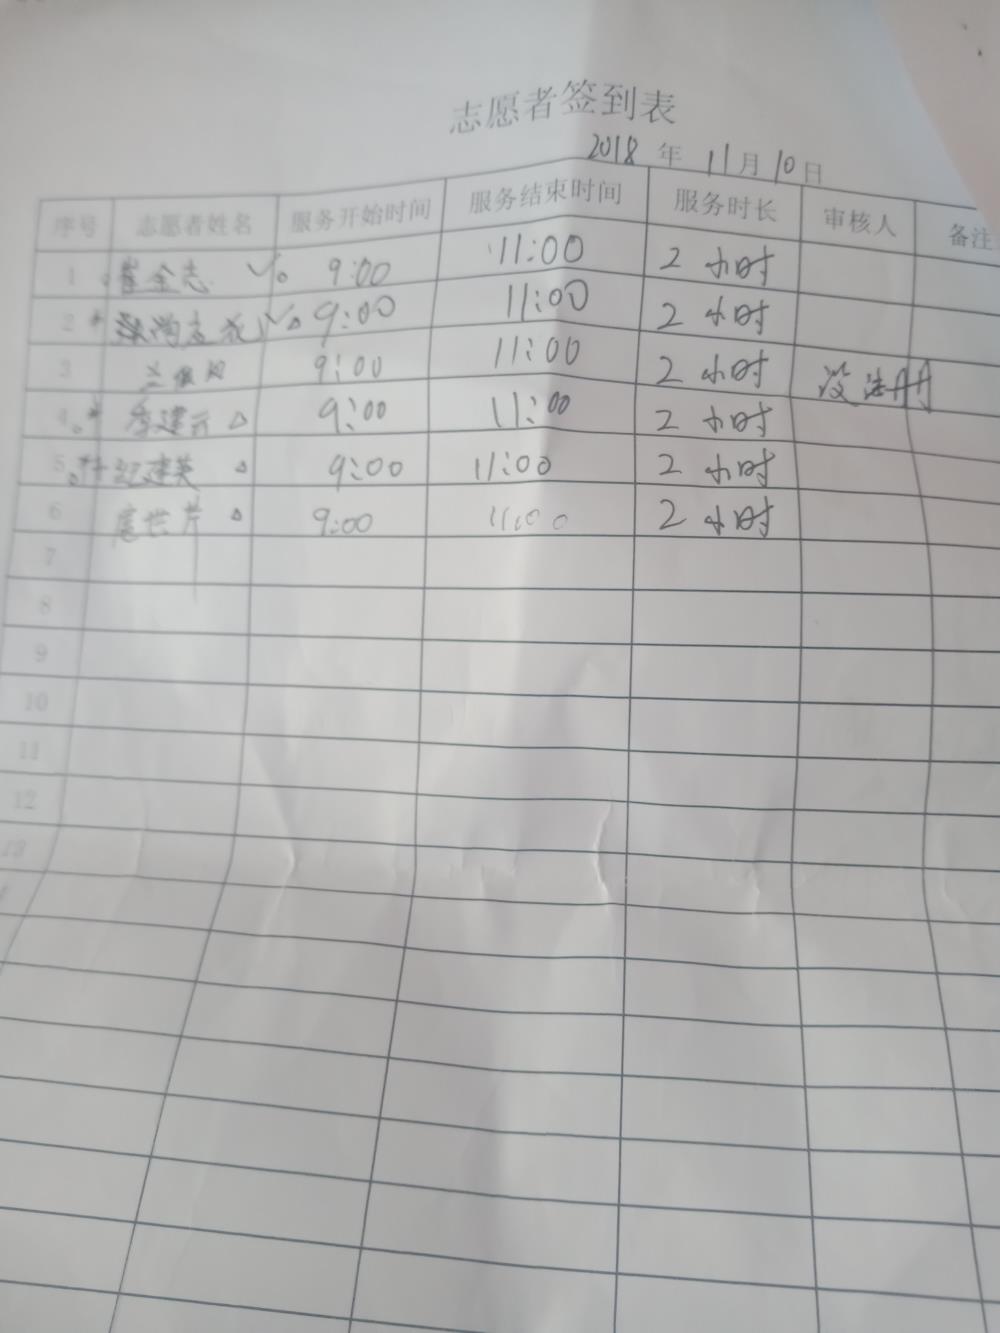 志愿者签到表
2018 年 11 月 10 日
序号 志愿者姓名 服务开始时间 服务结束时间 服务时长 审核人 备注
1 崔全志 9:00 11:00 2 小时
2 9:00 11:00 2 小时
3 9:00 11:00 2 小时 没注册
4 李建云 △ 9:00 11:00 2 小时
5 江建英 △ 9:00 11:00 2 小时
6 △ 9:00 11:00 2 小时
7
8
9
10
11
12
13